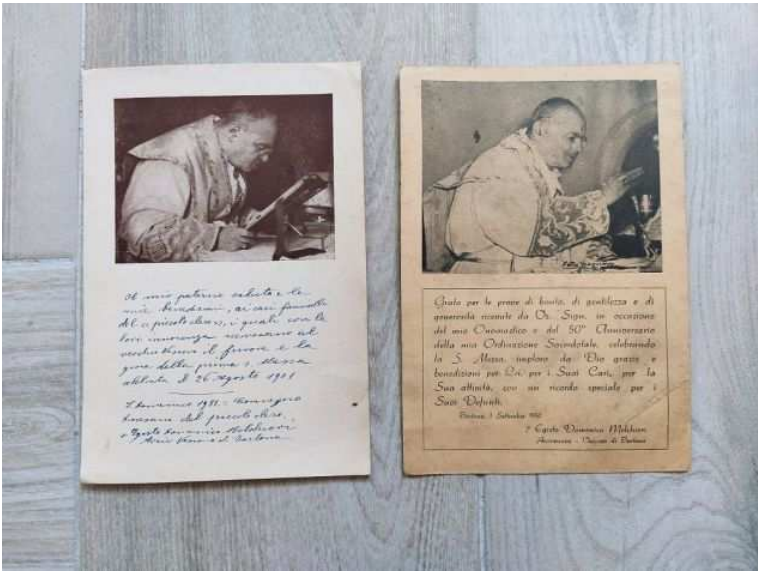 Il mio paterno saluto e le
mie benedizioni, ai cari fanciulli
del piccolo clero, i quali con la
loro innocenza
vecchio Vescovo il fervore e la
gioia della prima S. Messa
celebrata il 26 Agosto 1901
1951 - Convegno
del piccolo clero.
+ Egisto Domenico Melchiori
Vescovo di Tortona
Grato per le prove di bontà, di gentilezza e di
generosità ricevute da Ott. Sign. in occasione
del mio Onomastico e del 50° Anniversario
della mia Ordinazione Sacerdotale, celebrando
la S. Messa, imploro da Dio grazie e
benedizioni per Lei, per i Suoi Cari, per la
Sua attività, con un ricordo speciale per i
Suoi Defunti.
Tortona, 1 Settembre
† Egisto Domenico Melchiori
Arcivescovo - Vescovo di Tortona